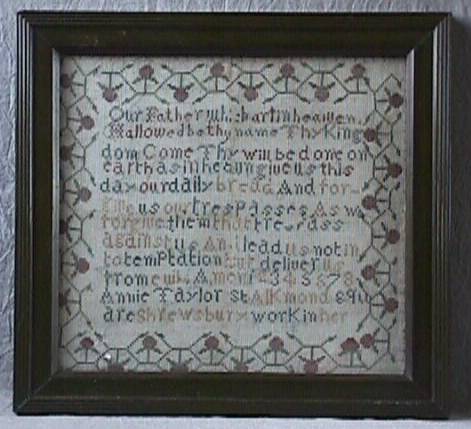 Our Father which art in heaven
Hallowed be thy name Thy King
dom Come Thy will be done on
earth as in heavn give us this
day our daily bread And for-
give us our tresPasses As we
forgive them that tresPass
against us And lead us not in
to temptation but deliver us
from evil Amen 12345678
Annie Taylor St Alkmond
are shrewsbury work in her